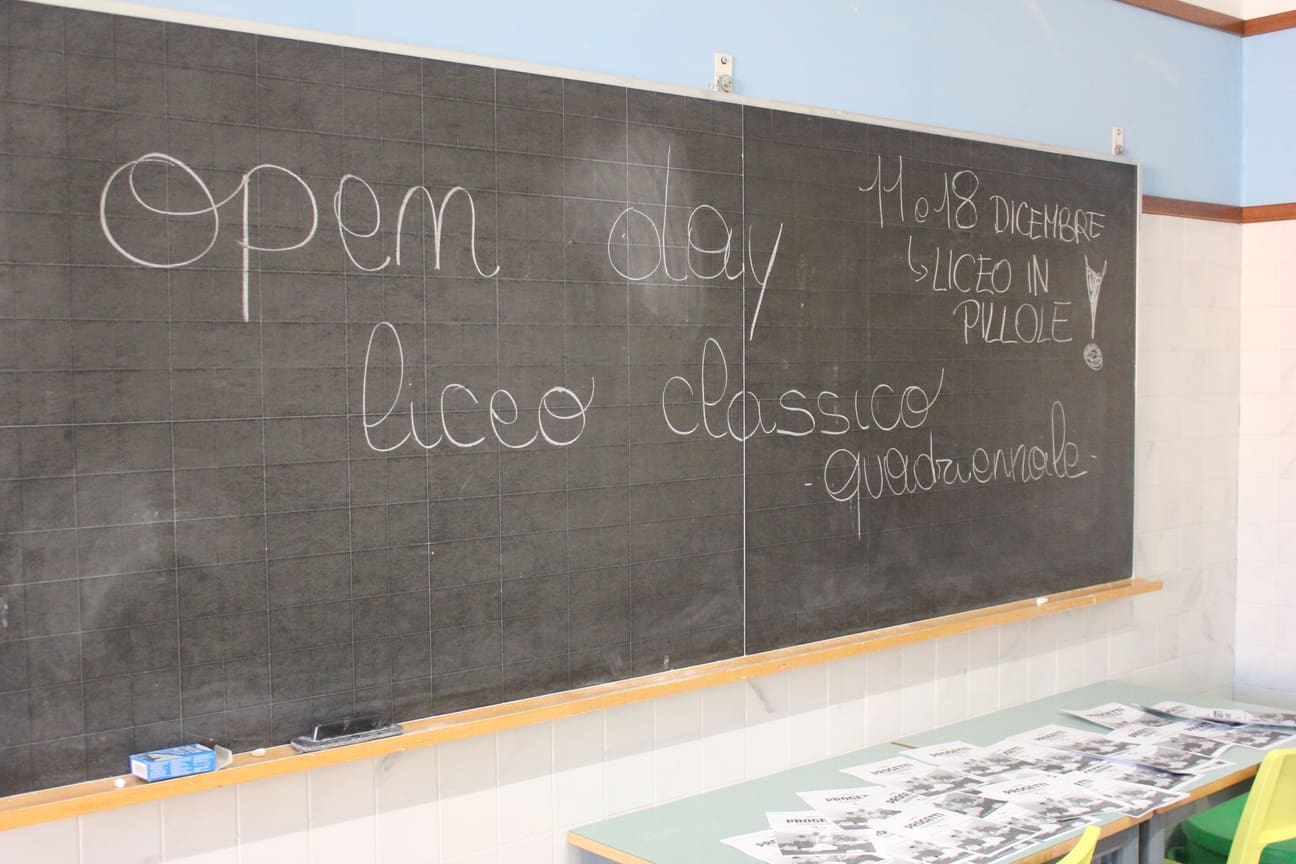 open day
liceo classico
- quadriennale -
11 e 18 DICEMBRE
↳ LICEO IN
PILLOLE !
PROGETTI
PROGETTI
PROGETTI
PROGETTI